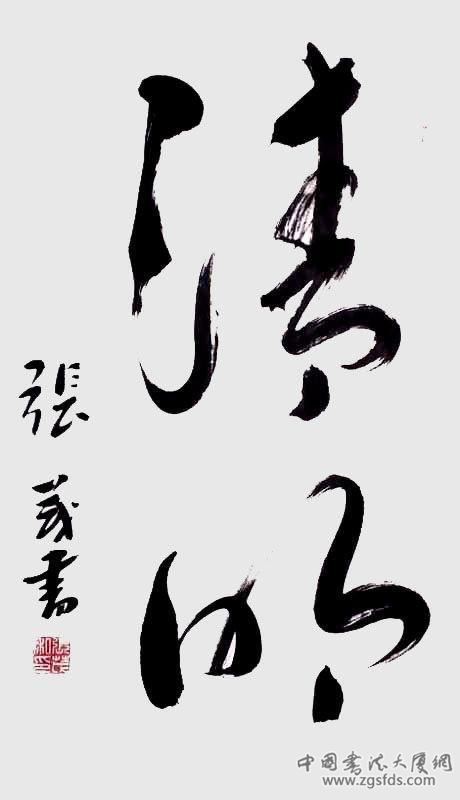 清明
張茂書
中國書法大厦網
www.zgsfds.com